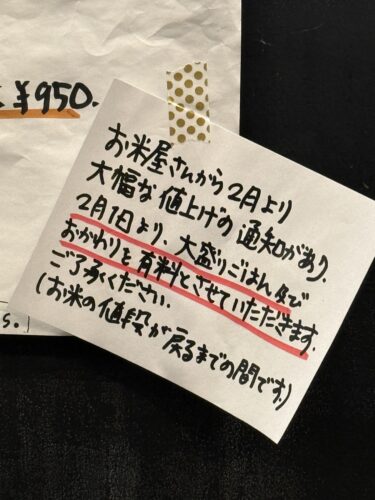 ¥950.
お米屋さんから2月より
大幅な値上げの通知があり、
2月1日より、大盛りごはん
おかわりを有料とさせていただきます。
ご了承ください。
(お米の値段が戻るまでの間です。)
s.